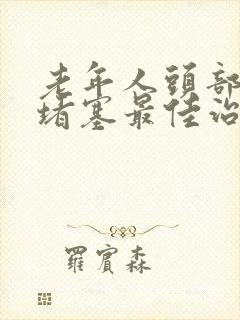 老年人頭部
堵塞最佳治
羅賓森